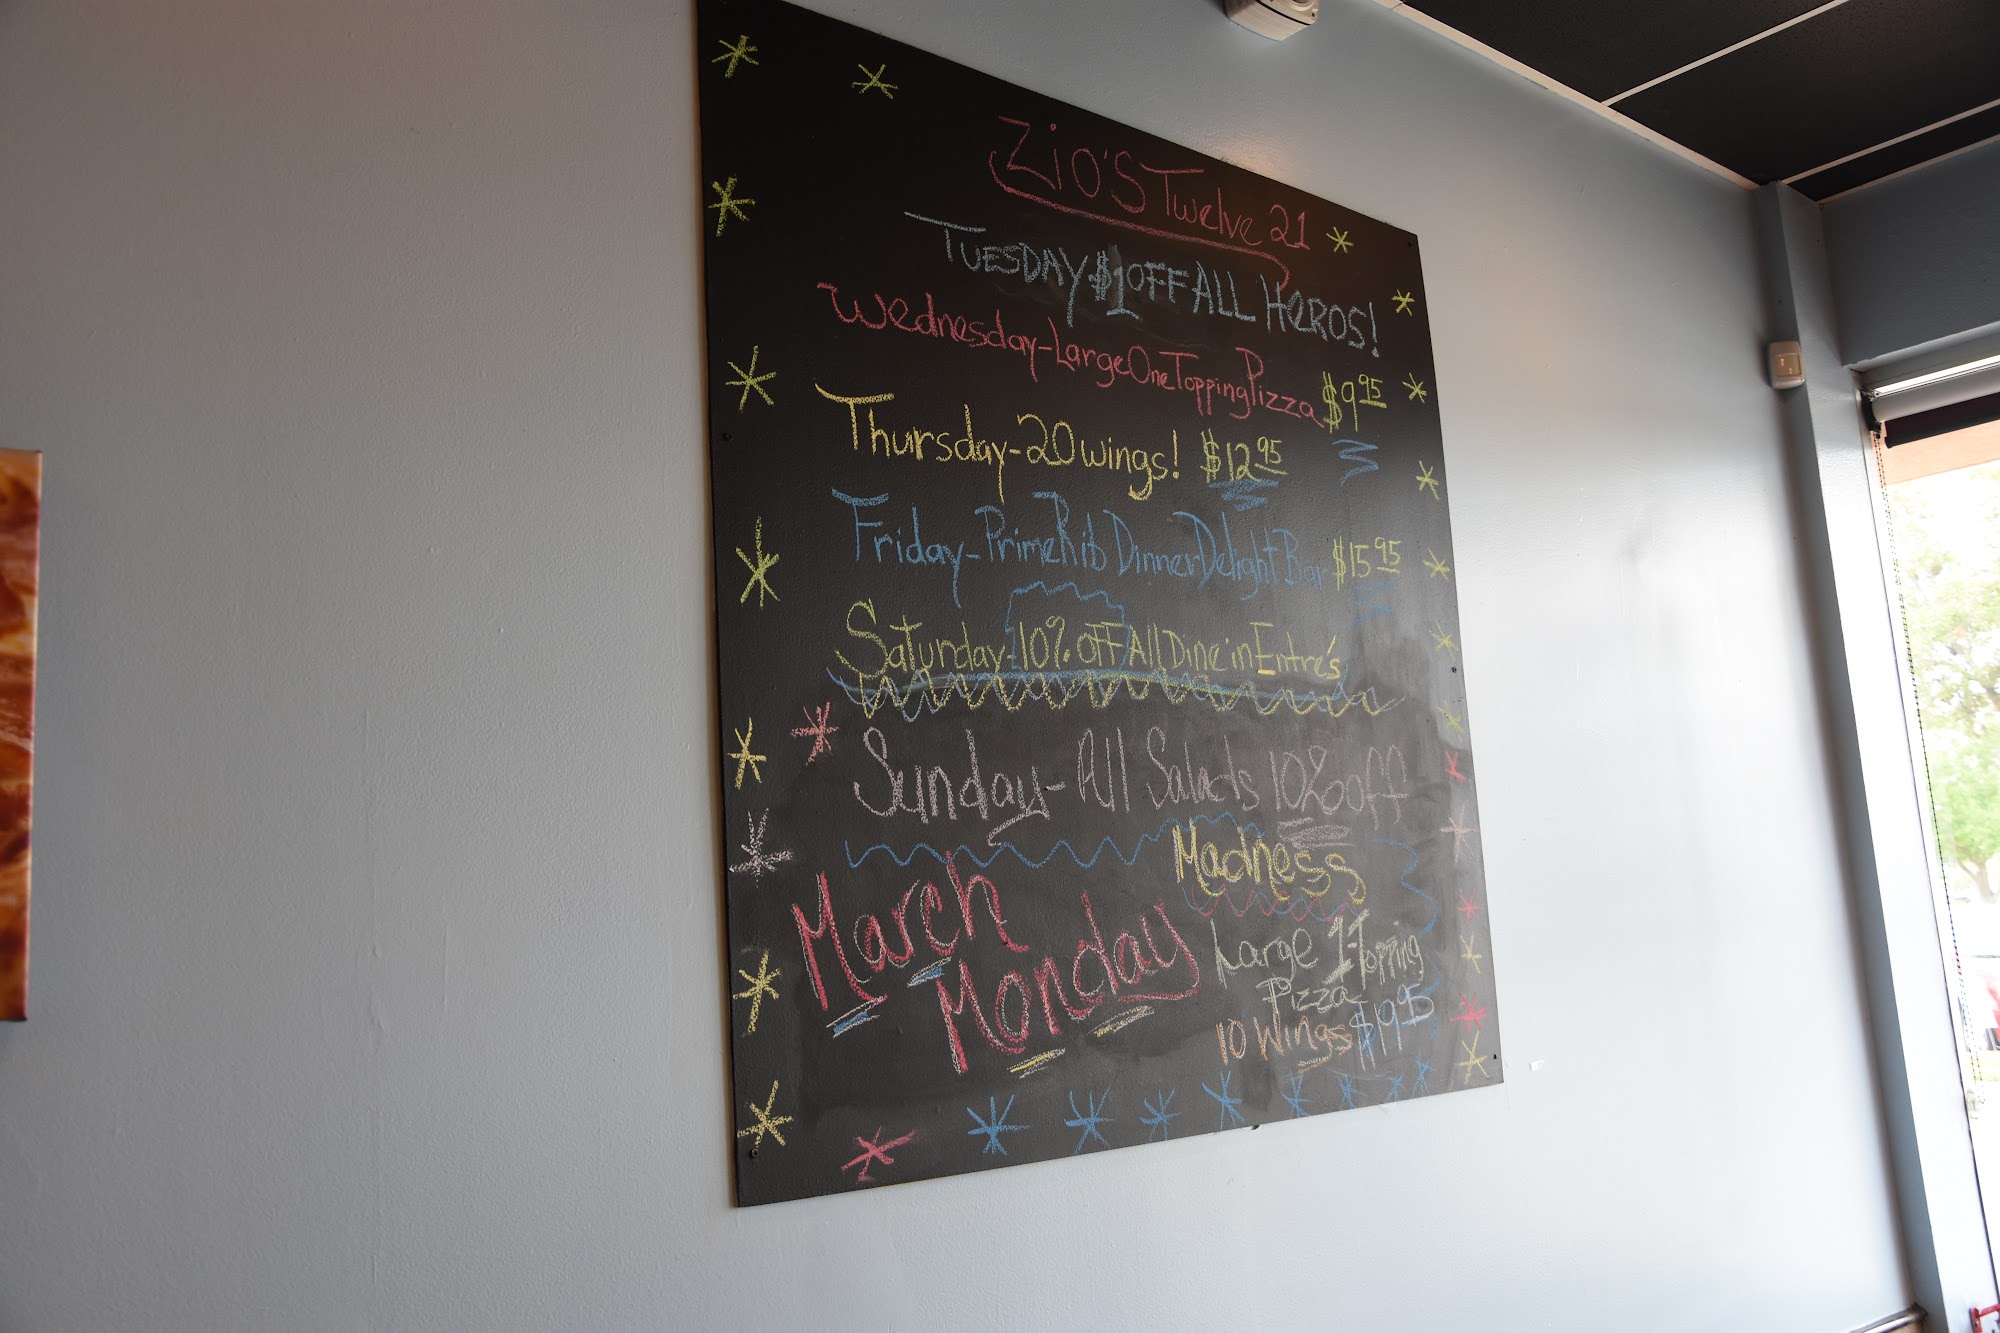 Zio's Twelve 21
TUESDAY $1 OFF ALL HeROS!
Wednesday-Large One Topping Pizza $9.95
Thursday-20 wings! $12.95
Friday-Prime Rib Dinner Delight Bar $15.95
Saturday-10% OFF All Dine in Entre's
Sunday-All Salads 10% off
March
Monday
Madness
Large 1-Topping
Pizza
10 Wings $19.95